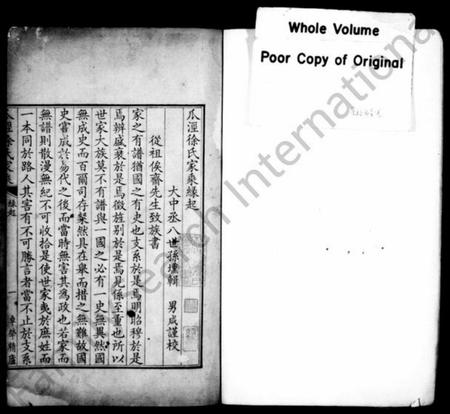 Whole Volume
Poor Copy of Original
瓜涇徐氏家乘緣起
大中丞八世孫壇輯 男成謹校
從祖俟齋先生致族書
家之有譜猶國之有史也支系於是焉明昭穆於是
焉辨盛衰於是焉徵旌别於是焉見係至重也所以
世家大族莫不有譜與一國之必有一史無異然國
無成史而百爾司存槩然具在舉而措之無難故國
史嘗成於易代之後而當時無害其為政也若家而
無譜則散漫無紀不可收拾是使世家夷於庶姓而
一本同於路人其害有不可勝言者當不止於支系
瓜涇徐氏家乘 緣起 一
Search International